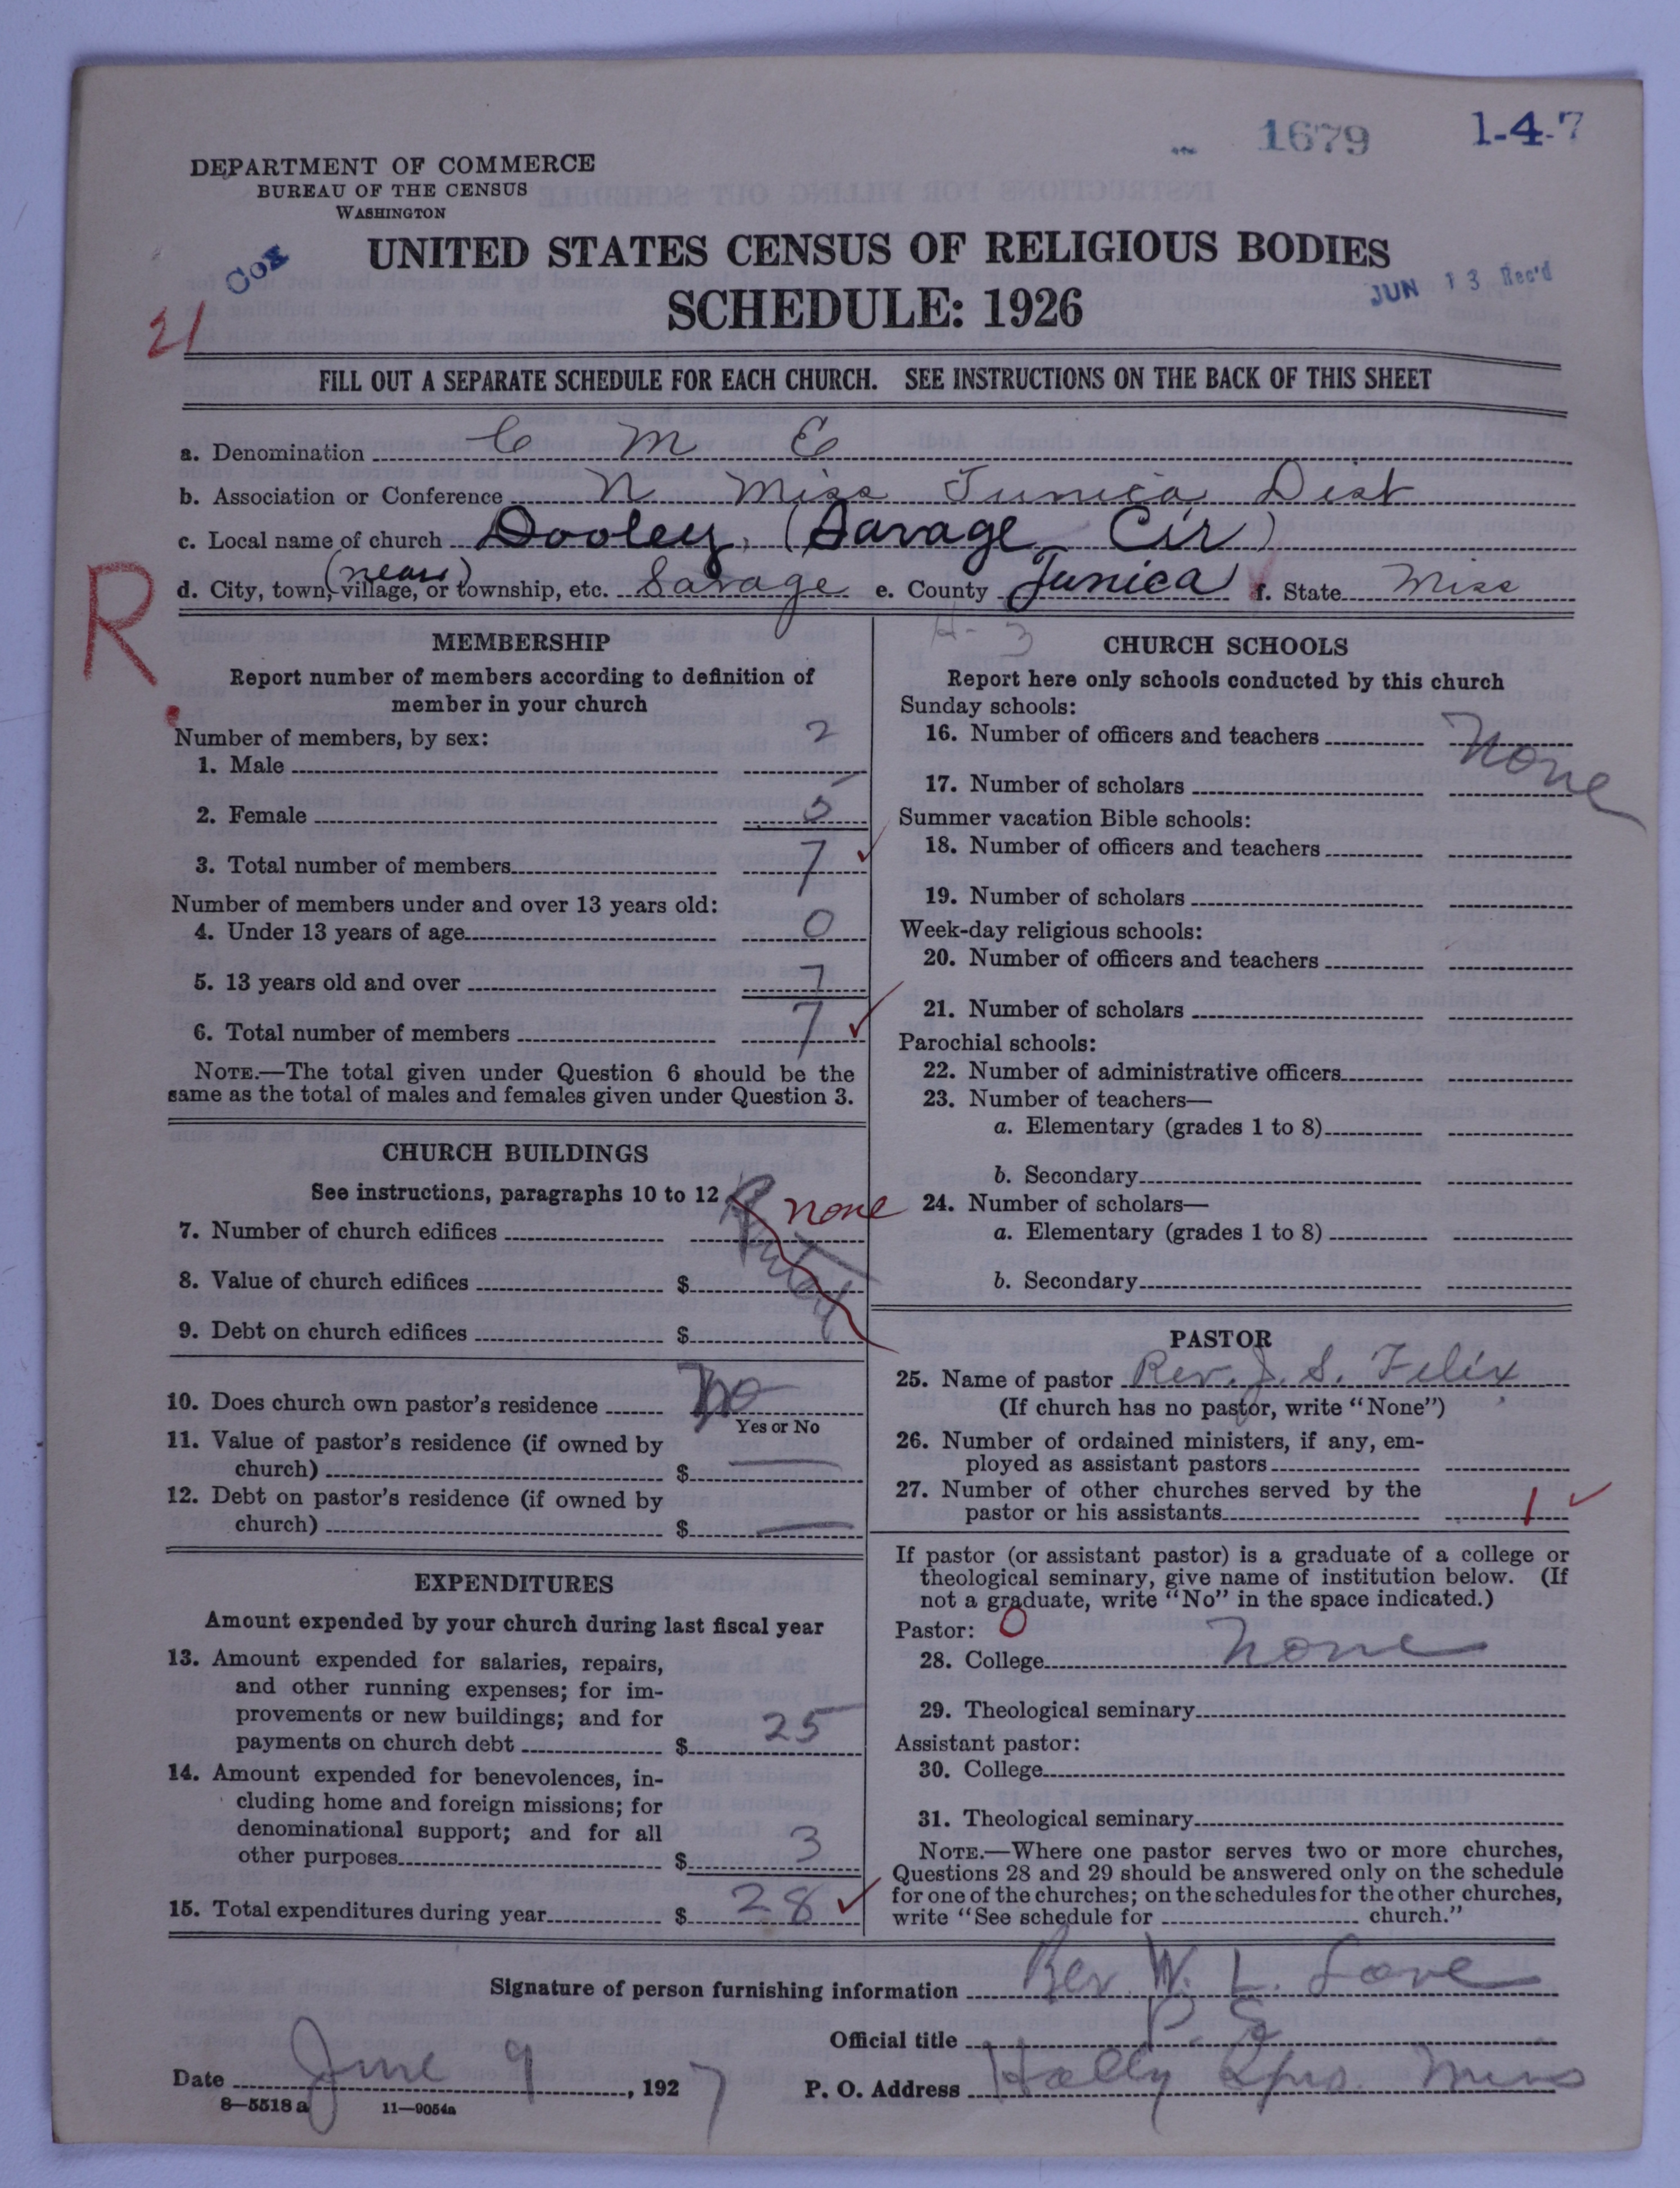 1679 1-4-7
DEPARTMENT OF COMMERCE
BUREAU OF THE CENSUS
WASHINGTON
COX
UNITED STATES CENSUS OF RELIGIOUS BODIES
JUN 13 Rec'd
21
SCHEDULE: 1926
FILL OUT A SEPARATE SCHEDULE FOR EACH CHURCH. SEE INSTRUCTIONS ON THE BACK OF THIS SHEET
a. Denomination C M E
b. Association or Conference N Miss Tunica Dist
c. Local name of church Dooley, (Savage Cir)
(near)
d. City, town, village, or township, etc. Savage e. County Tunica f. State Miss
R.
H-3
MEMBERSHIP
Report number of members according to definition of
member in your church
Number of members, by sex:
1. Male 2
2. Female 5
3. Total number of members 7
Number of members under and over 13 years old:
4. Under 13 years of age 0
5. 13 years old and over 7
6. Total number of members 7
NOTE.—The total given under Question 6 should be the
same as the total of males and females given under Question 3.
CHURCH BUILDINGS
See instructions, paragraphs 10 to 12
none
7. Number of church edifices
8. Value of church edifices $
9. Debt on church edifices $
10. Does church own pastor's residence No
Yes or No
11. Value of pastor's residence (if owned by
church) $ —
12. Debt on pastor's residence (if owned by
church) $ —
EXPENDITURES
Amount expended by your church during last fiscal year
13. Amount expended for salaries, repairs,
and other running expenses; for im-
provements or new buildings; and for
payments on church debt $ 25
14. Amount expended for benevolences, in-
cluding home and foreign missions; for
denominational support; and for all
other purposes $ 3
15. Total expenditures during year $ 28
CHURCH SCHOOLS
Report here only schools conducted by this church
Sunday schools:
16. Number of officers and teachers None
17. Number of scholars
Summer vacation Bible schools:
18. Number of officers and teachers
19. Number of scholars
Week-day religious schools:
20. Number of officers and teachers
21. Number of scholars
Parochial schools:
22. Number of administrative officers
23. Number of teachers—
a. Elementary (grades 1 to 8)
b. Secondary
24. Number of scholars—
a. Elementary (grades 1 to 8)
b. Secondary
PASTOR
25. Name of pastor Rev. J. S. Felix
(If church has no pastor, write "None")
26. Number of ordained ministers, if any, em-
ployed as assistant pastors
27. Number of other churches served by the
pastor or his assistants 1
If pastor (or assistant pastor) is a graduate of a college or
theological seminary, give name of institution below. (If
not a graduate, write "No" in the space indicated.)
Pastor: 0
28. College None
29. Theological seminary
Assistant pastor:
30. College
31. Theological seminary
NOTE.—Where one pastor serves two or more churches,
Questions 28 and 29 should be answered only on the schedule
for one of the churches; on the schedules for the other churches,
write "See schedule for church."
Signature of person furnishing information Rev W. L. Love
Official title P. E
Date June 9, 1927 P. O. Address Holly Sprs. Miss
8—5518 a 11—9054a